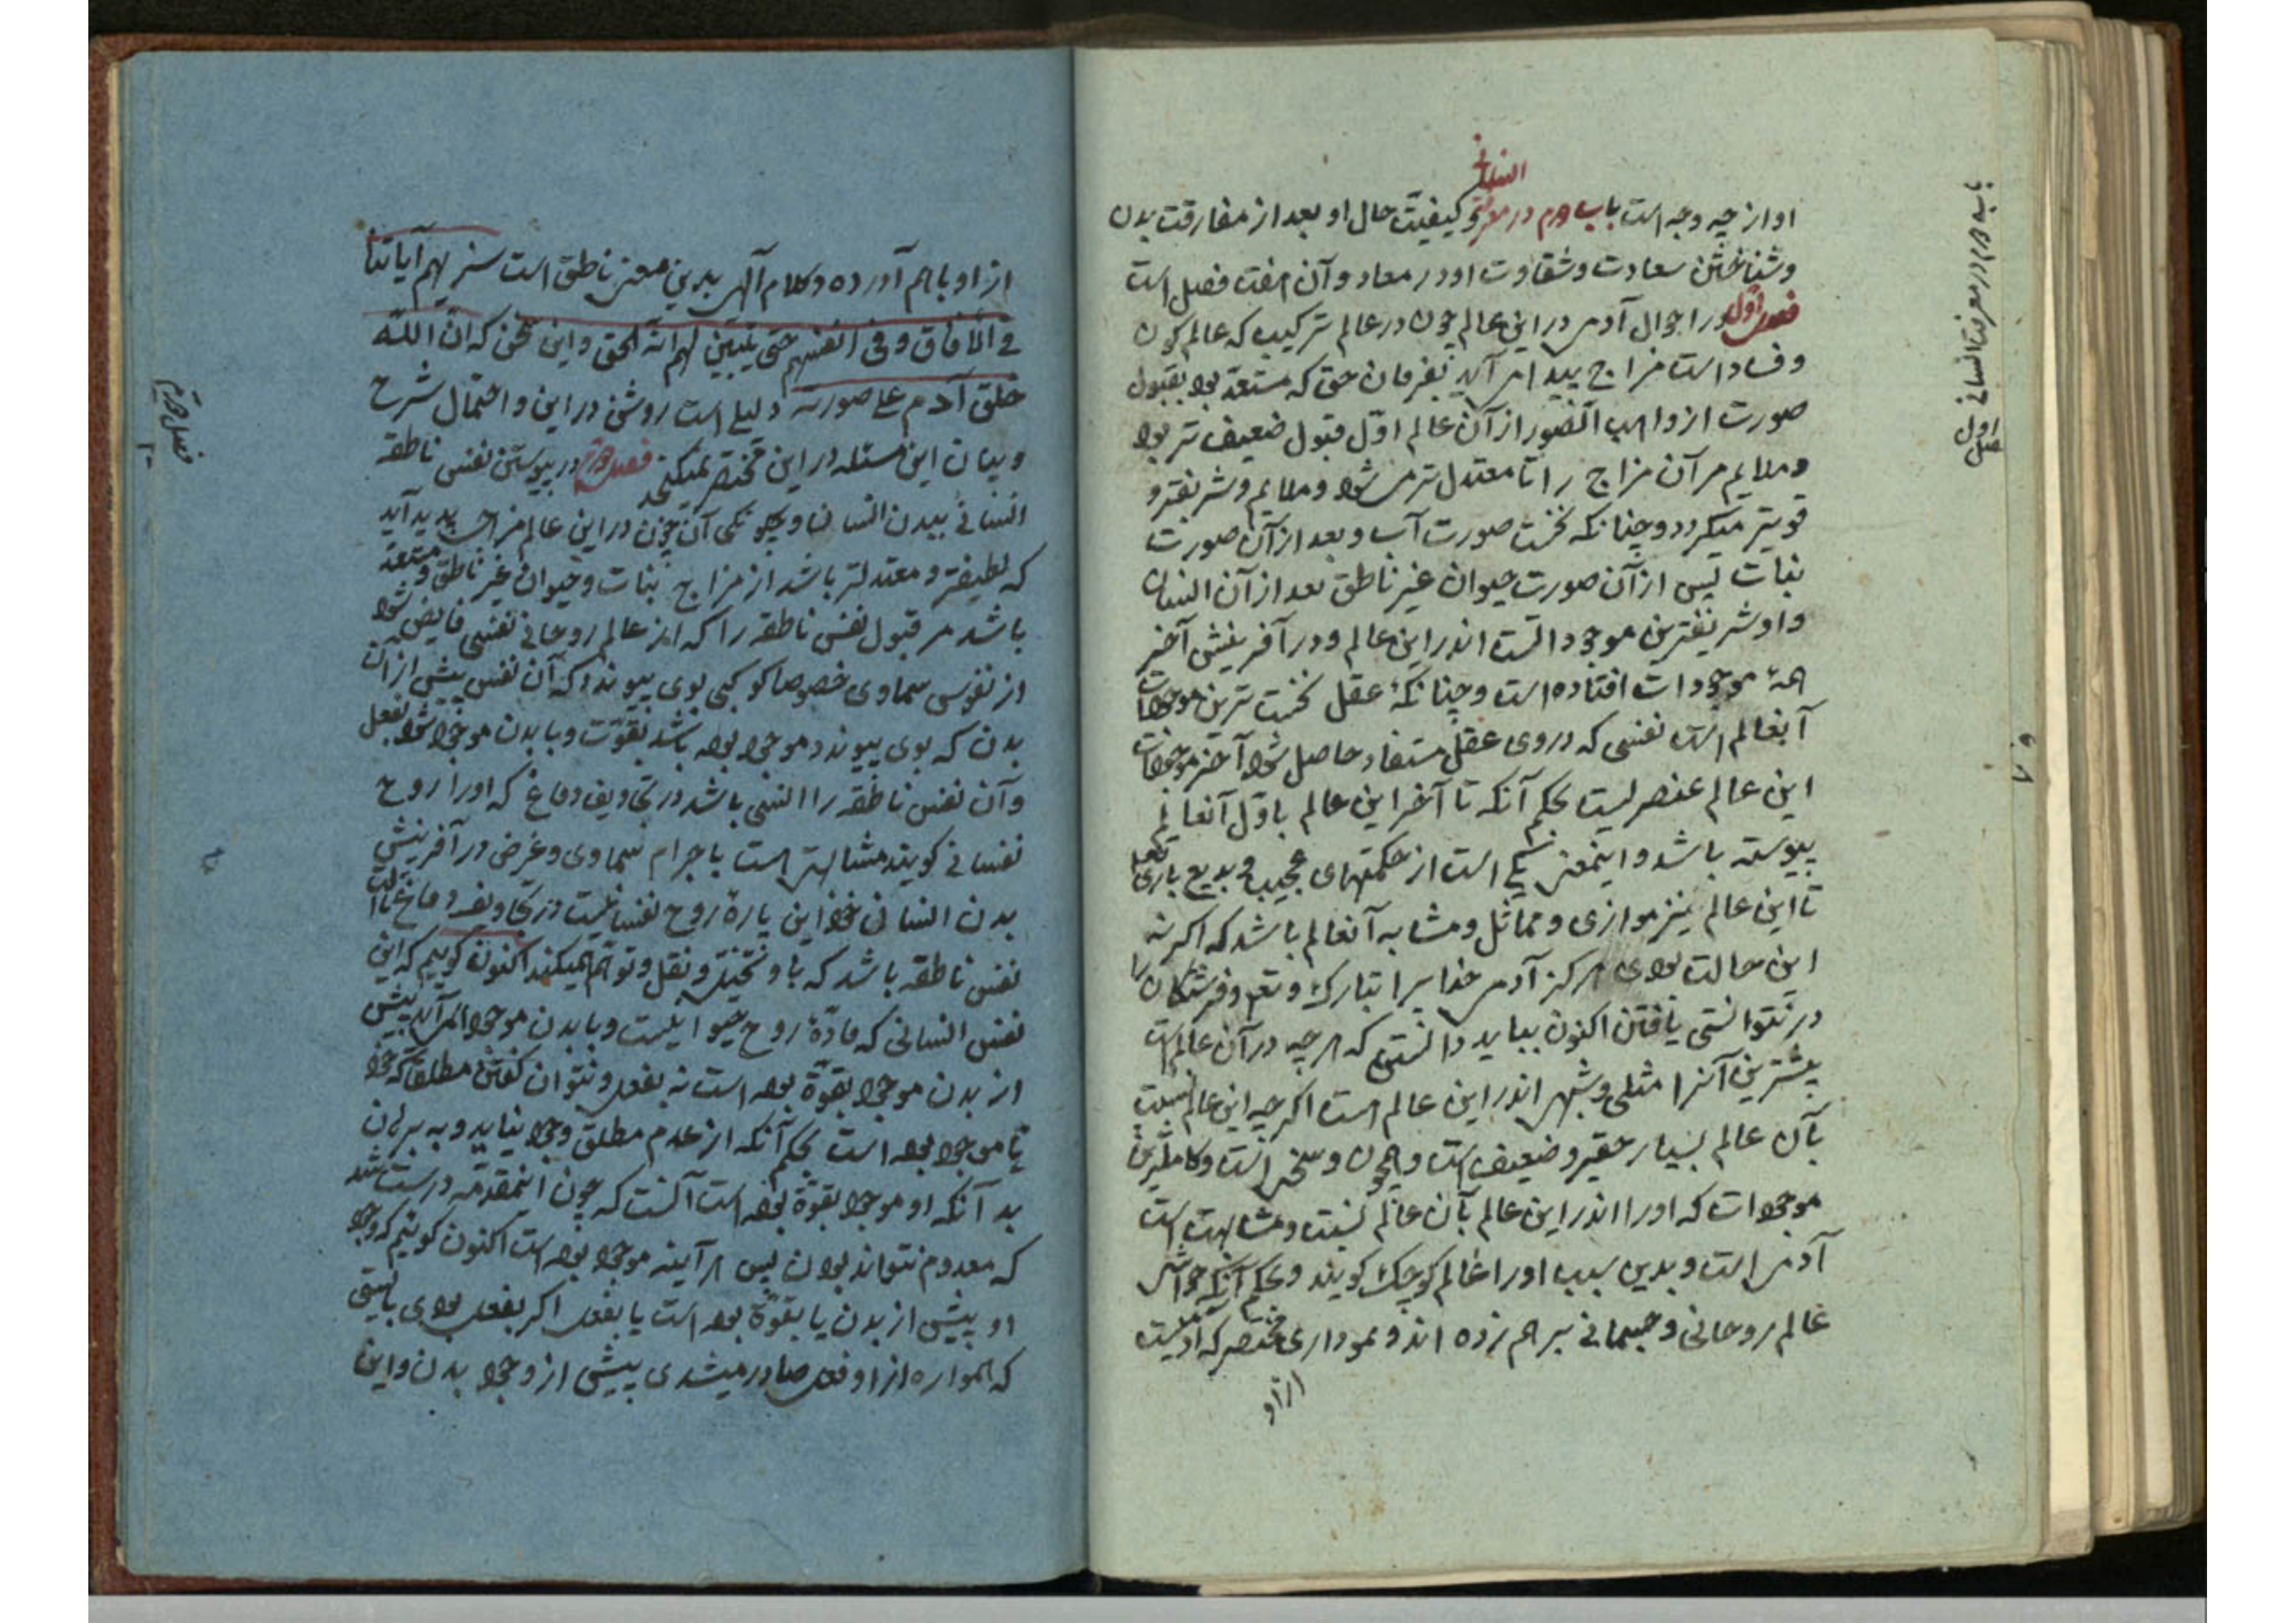 النسانی
او از چه وجه است باب دوم در معرفة و کیفیّت حال او بعد از مفارقت بدن
و شناختن سعادت و شقاوت او در معاد و آن هفت فصل است
فصل اوّل در احوال آدمی در این عالم چون در عالم ترکیب که عالم کون
و فساد است مزاج پیدا می آید بفرمان حق که مستعدّ بود بقبول
صورت از واهب الصّور از آن عالم اوّل قبول ضعیف تر بود
و ملایم مر آن مزاج را تا معتدل تر می شود و ملایم و شریفتر و
قویتر میکردد و چنانکه نخست صورت آب و بعد از آن صورت
نبات پس از آن صورت حیوان غیر ناطق بعد از آن انسان
و او شریفترین موجودات است اندر این عالم و در آفرینش آخر
همهٔ موجودات افتاده است و چنانکه عقل نخست ترین موجودات
آنعالم است نفسی که در وی عقل مستفاد حاصل شود آخر موجودات
این عالم عنصریست بحکم آنکه تا آخر این عالم باوّل آنعالم
پیوسته باشد و اینمعنی یکی است از حکمتهای عجیب و بدیع باری تعالی
تا این عالم نیز موازی و مماثل و مشابه آنعالم باشد که اکر نه
این حالت بودی هرکز آدمی خدایرا تبارک و تعم و فرشتکان را
در نتوانستی یافتن اکنون بباید دانستن که هرچه در آن عالم است
بیشترین آنرا مثلی و شبهی اندر این عالم است اکرچه این عالم نسبت
بآن عالم بسیار حقیر و ضعیف است و همچون و سخر است و کاملترین
موجودات که او را اندر این عالم بآن عالم نسبت و مشابهت است
آدمی است و بدین سبب او را عالم کوچک کویند و بحکم آنکه خواش
عالم روحانی و جسمانی بر هم زده اند و نموداری مختصر که آدمیست
از او
باب دوم در معرفت انسانی
فصل اول
از او باهم آورده و کلام آلهی بدین معنی ناطق است سنریهم آیاتنا
فی الآفاق و فی انفسهم حتی یتبیّن لهم انّه الحق و این سخن که انّ اللّه
خلق آدم علی صورته دلیلی است روشن در این و احتمال شرح
و بیان این مسئله در این مختصر نمیکنجد فصل دوم در پیوستن نفس ناطقه
انسانی ببدن انسان و چکونکی آن چون در این عالم مزاجی پدید آید
که لطیفتر و معتدلتر باشد از مزاج نبات و حیوان غیر ناطق و مستعد
باشد مر قبول نفس ناطقه را که از عالم روحانی نفسی فایض شود
از نفوس سماوی خصوصا کوکبی بوی پیوندد که آن نفس پیش از آن
بدن که بوی پیوندد موجود بوده باشد بقوّت و با بدن موجود شود بفعل
و آن نفس ناطقه را النسی باشد در تجاویف دماغ که او را روح
نفسانی کویند مشابهتی است باجرام سماوی و غرض در آفرینش
بدن انسان خود این پارهٔ روح نفسانیست در تجاویف دماغ
نفس ناطقه باشد که باو تخیّل و نقل و توهّم میکند اکنون کوییم که این
نفس انسانی که مادّهٔ روح حیوانیست و با بدن موجود می آید پیش
از بدن موجود بقوّة بوده است نه بفعل و نتوان کفتن مطلقا که خود
نا موجود بوده است بحکم آنکه از عدم مطلق وجود نیاید و به برهان
بد آنکه او موجود بقوّة بوده است آنست که چون اینمقدّمه درست شد
که معدوم نتواند بودن پس هرآینه موجود بوده است اکنون کوئیم که وجود
او پیش از بدن یا بقوّة بوده است یا بفعل اکر بفعل بودی بایستی
که همواره از او فعل صادر میشدی پیش از وجود بدن و این
فصل دوم